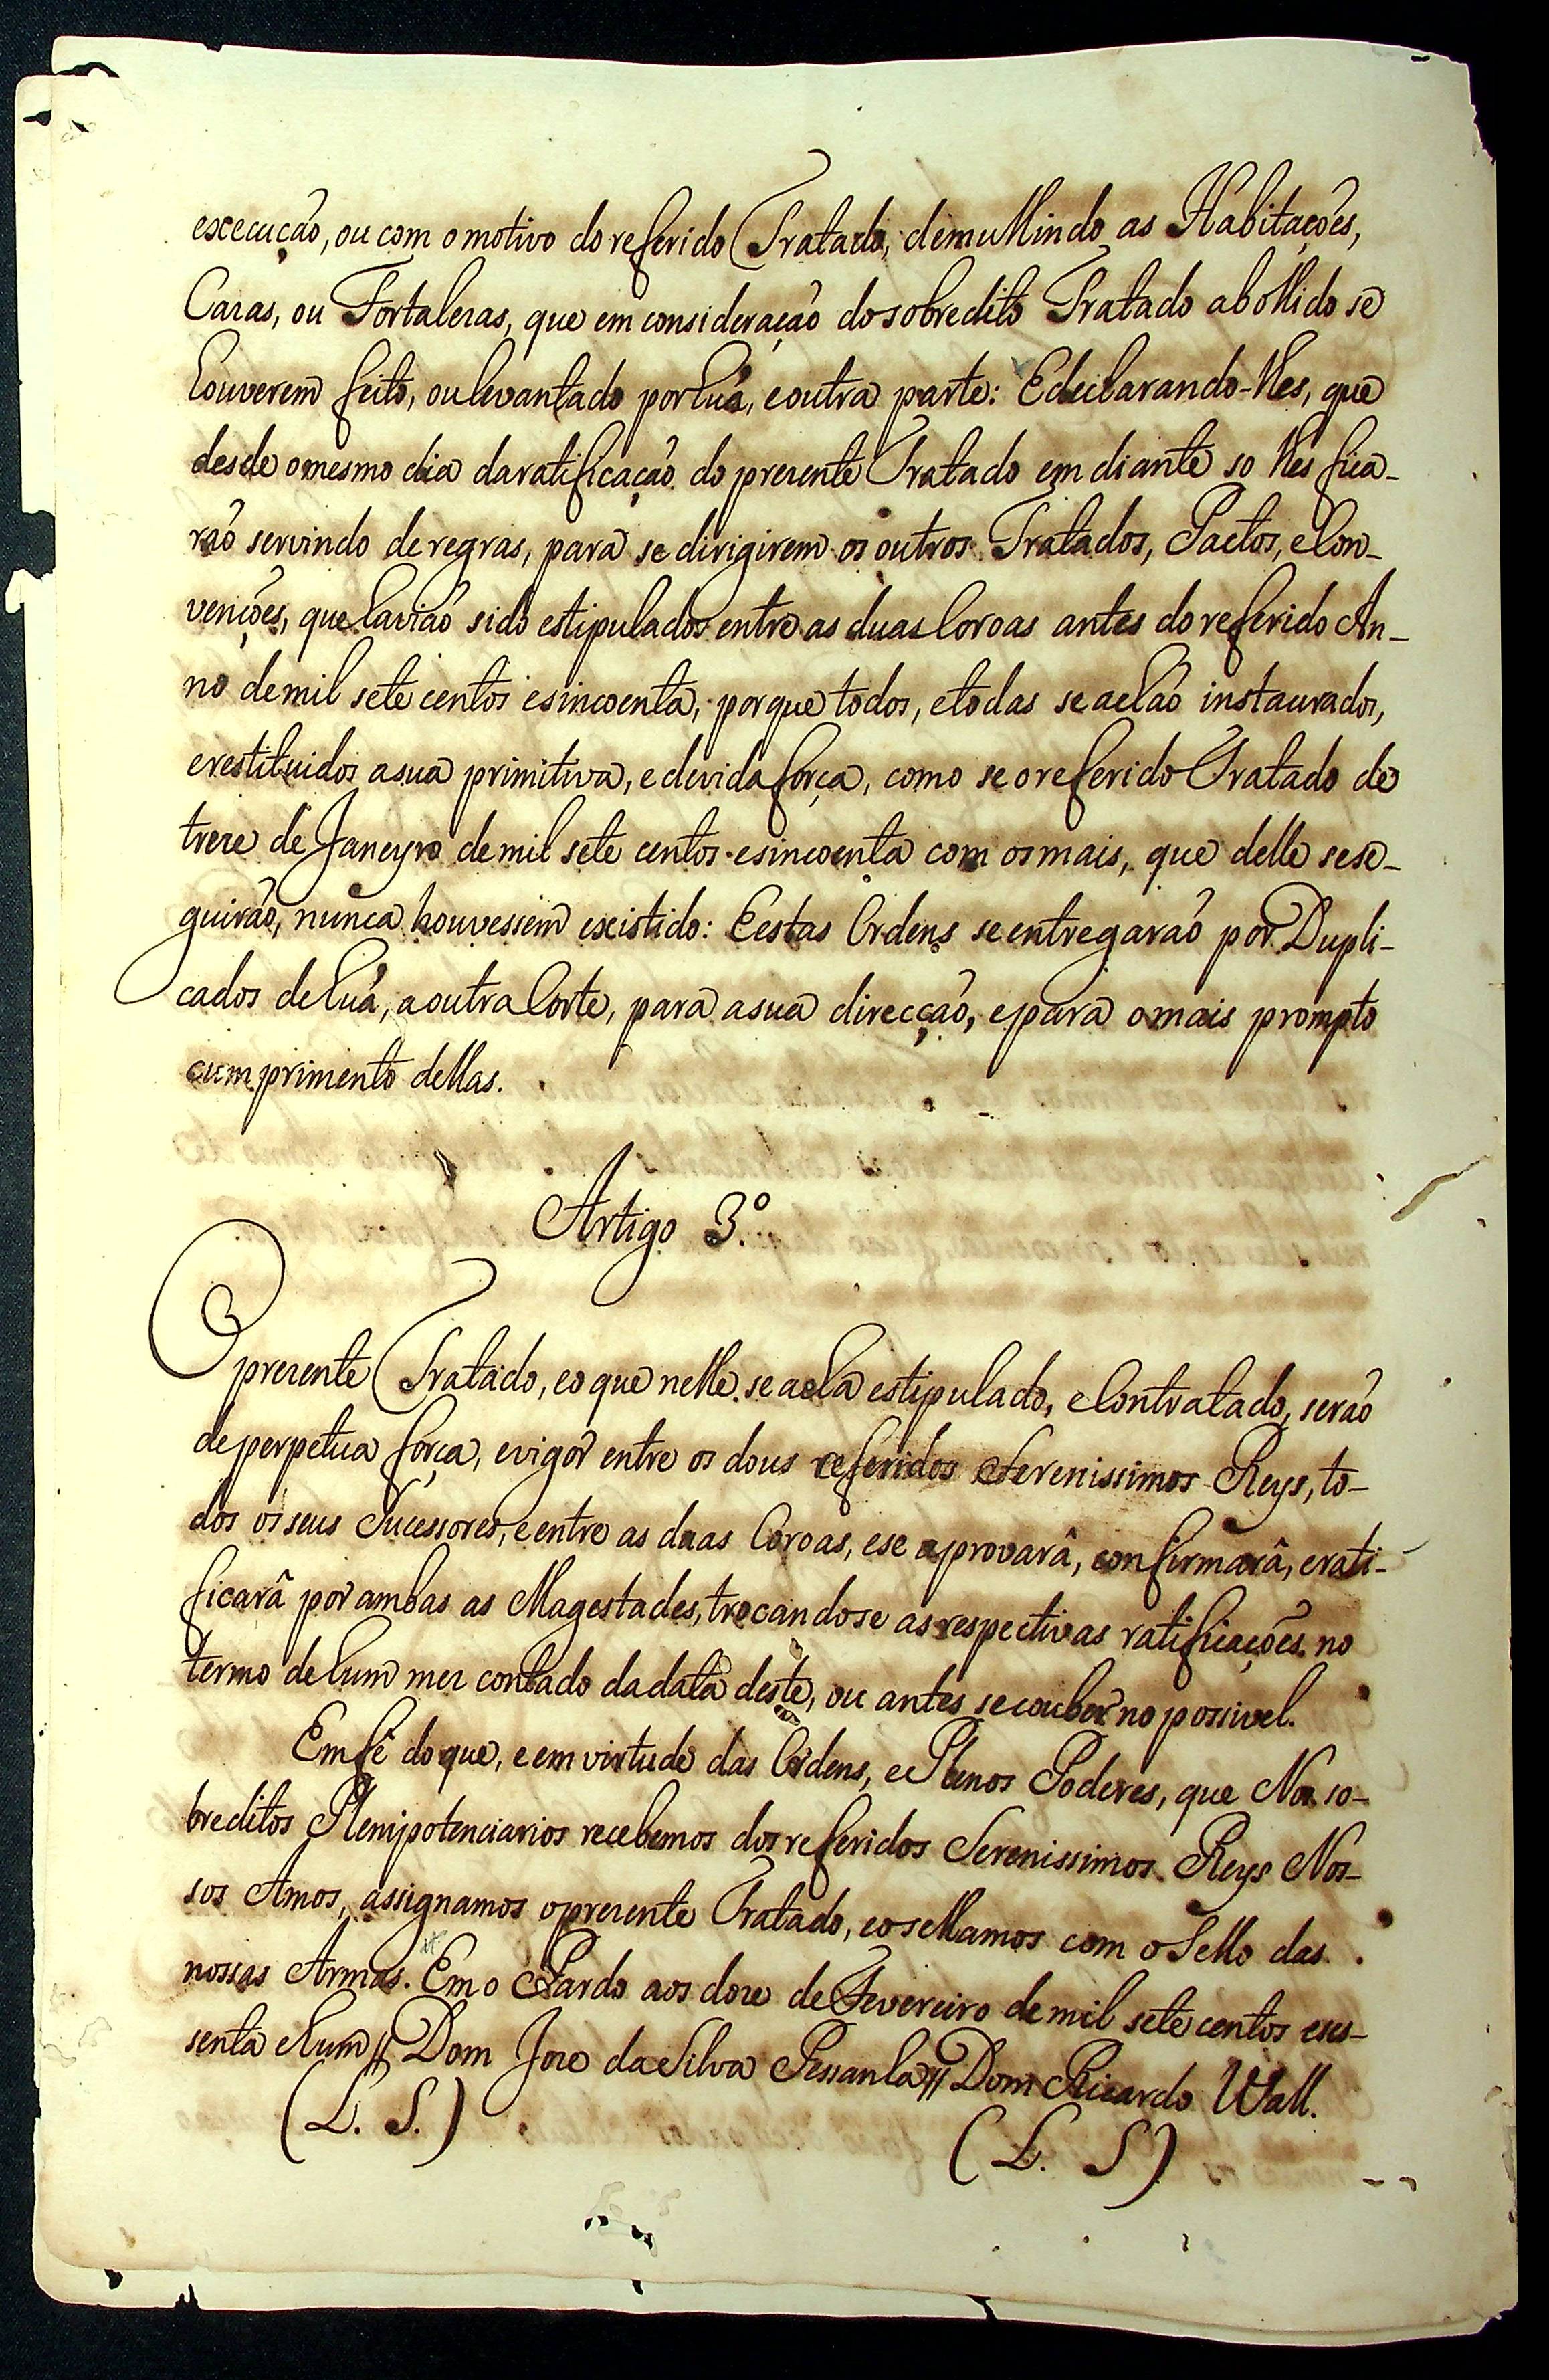 execução, ou com o motivo do referido Tratado, demullindo as Habitações,
Cazas, ou Fortalezas, que em consideração do sobredito Tratado abollido se
houverem feito, ou levantado por huã, e outra parte: E declarando-lhes, que
desde o mesmo dia da ratificação do prezente Tratado em diante so lhes fica-
rão servindo de regras, para se dirigirem os outros Tratados, Pactos, e Con-
venções, que havião sido estipulados entre as duas Coroas antes do referido An-
no de mil sete centos e sincoenta, porque todos, e todas se achão instaurados,
e restituidos a sua primitiva, e devida força, como se o referido Tratado de
treze de Janeyro de mil sete centos e sincoenta com os mais, que delle se se-
guirão, nunca houvessem existido: E estas Ordens se entregarão por Dupli-
cados de huã, a outra Corte, para a sua direcção, e para o mais prompto
cumprimento dellas.
Artigo 3.º
O prezente Tratado, e o que nelle se acha estipulado, e Contratado, serão
de perpetua força, e vigor entre os dous referidos Serenissimos Reys, to-
dos os seus Sucessores, e entre as duas Coroas, e se aprovarâ, confirmarâ, e rati-
ficarâ por ambas as Magestades, trocandose as respectivas ratificações no
termo de hum mez contado da data deste, ou antes se couber no possivel.
Em fé do que, e em virtude das Ordens, e Plenos Poderes, que Nos so-
breditos Plenipotenciarios recebemos dos referidos Serenissimos Reys Nos-
sos Amos, assignamos o prezente Tratado, e o sellamos com o Sello das
nossas Armas. Em o Pardo aos doze de Fevereiro de mil sete centos e ses-
senta e hum // Dom Joze da Silva Pessanha // Dom Ricardo Wall.
(L. S.) (L. S)